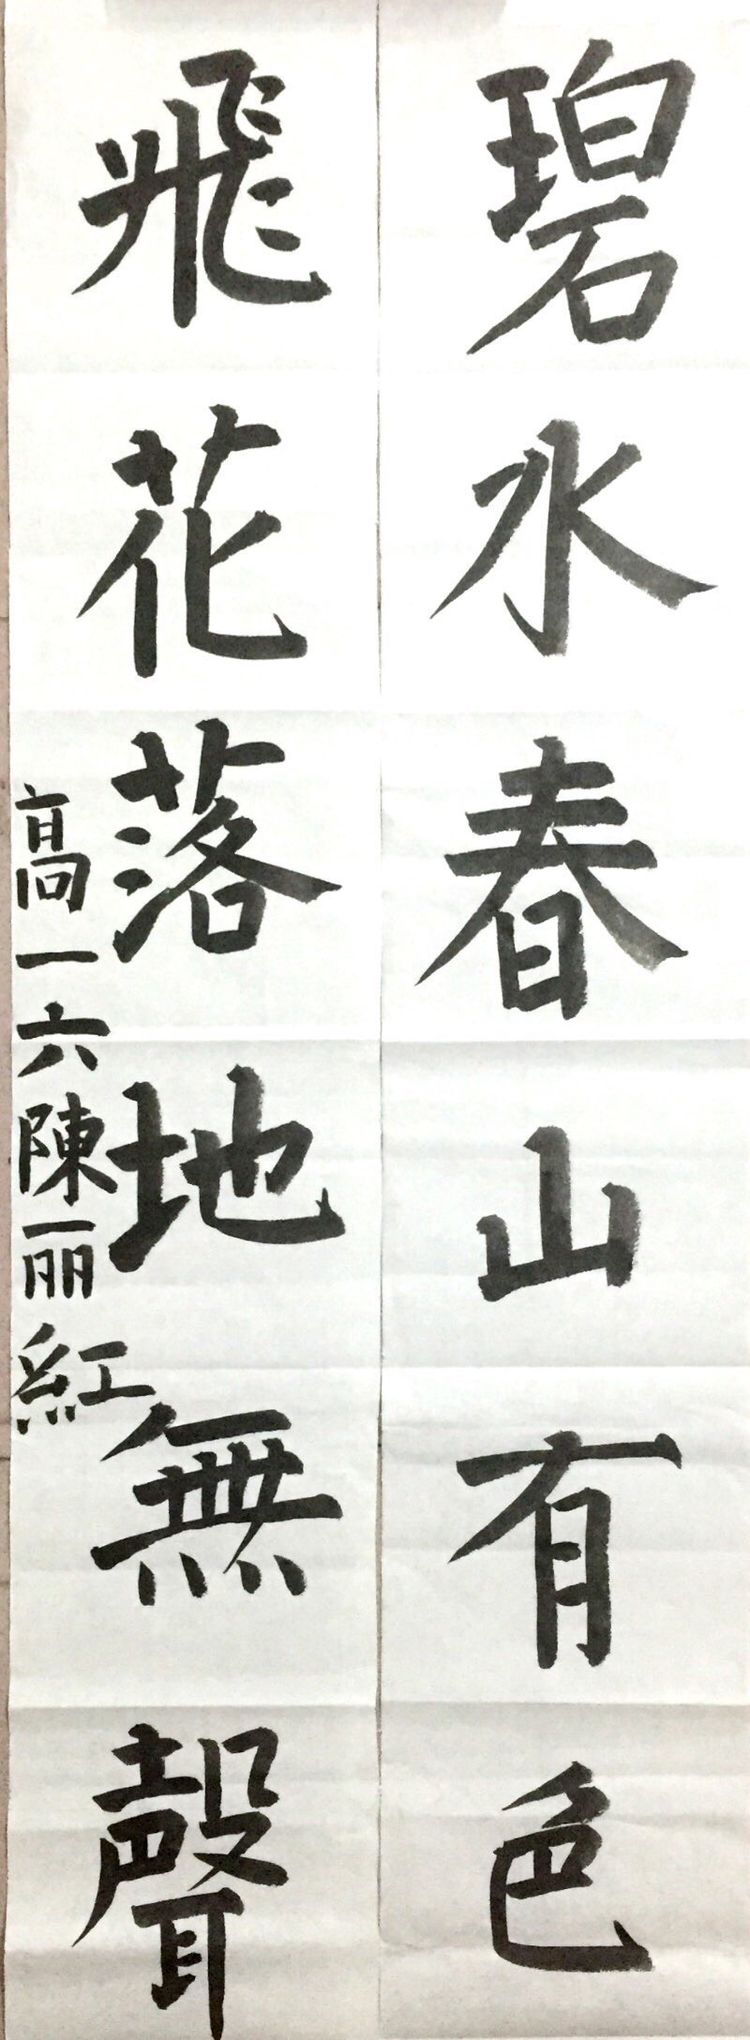 碧水春山有色
飛花落地無聲
高一六陳丽紅